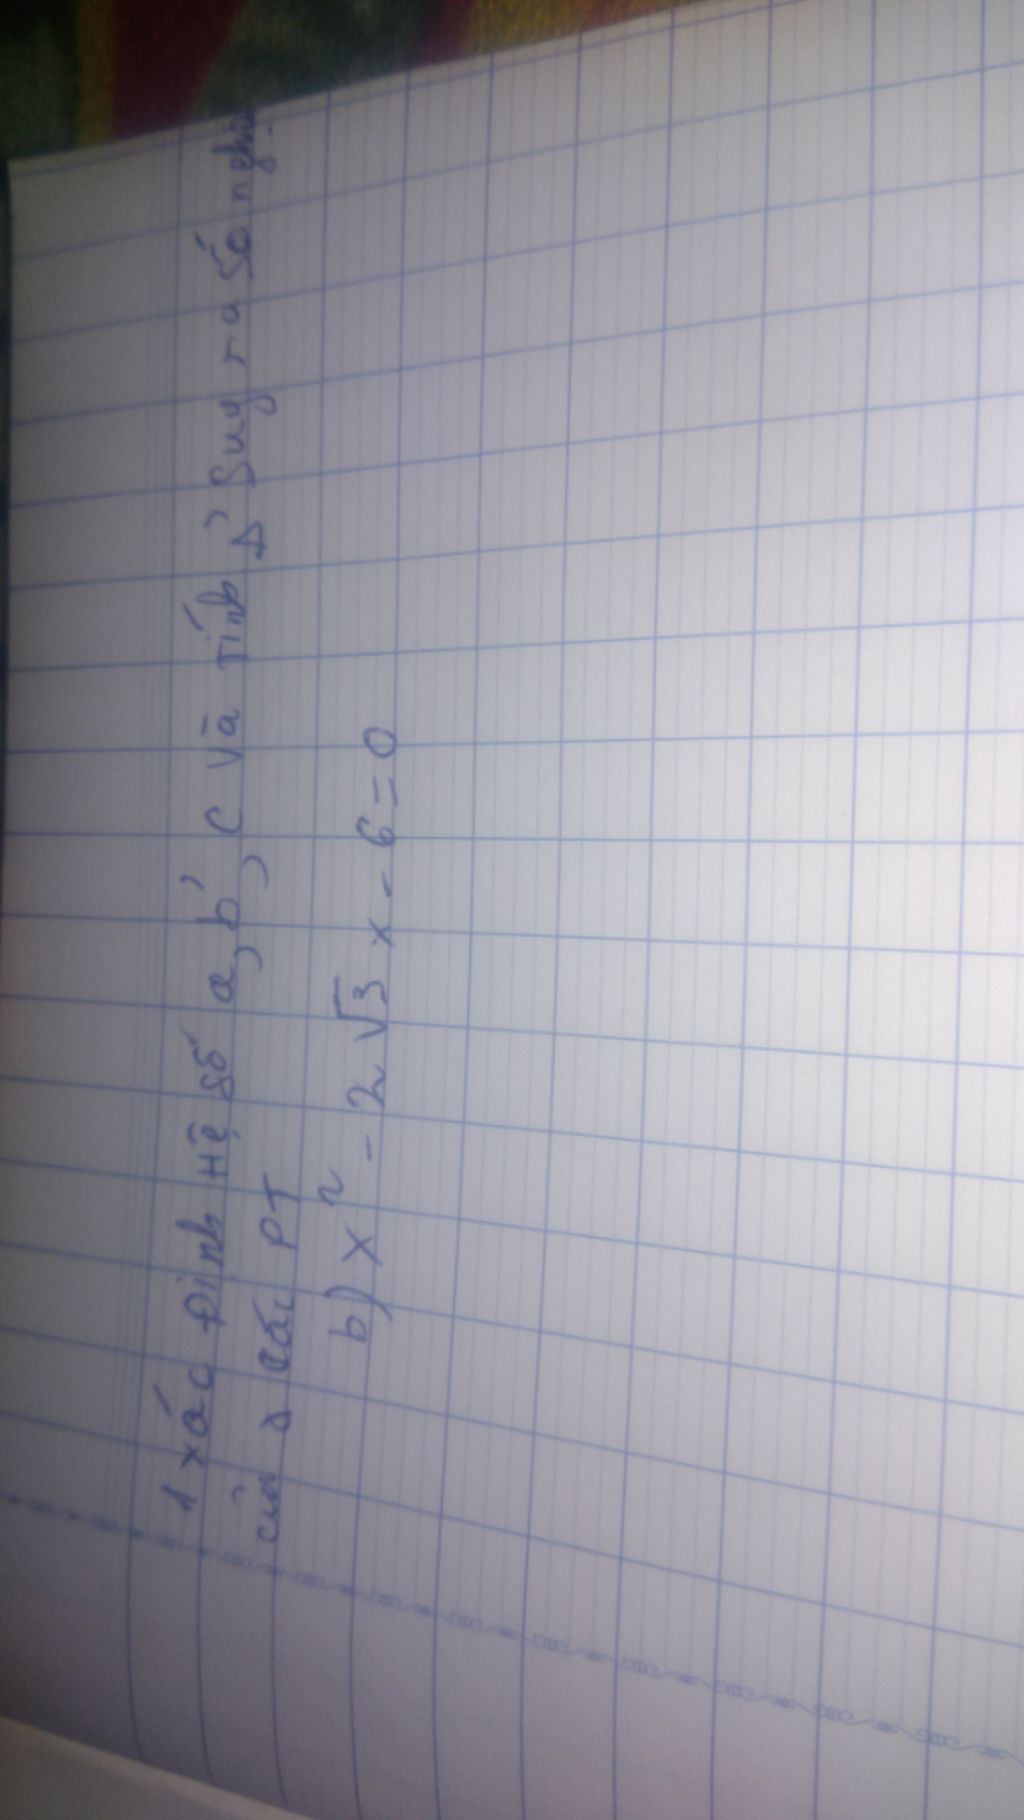 1 xác Định Hệ số a, b', c và tính Δ' Suy ra Số nghiệm
của Δ các PT
b) x² - 2√3 x - 6 = 0